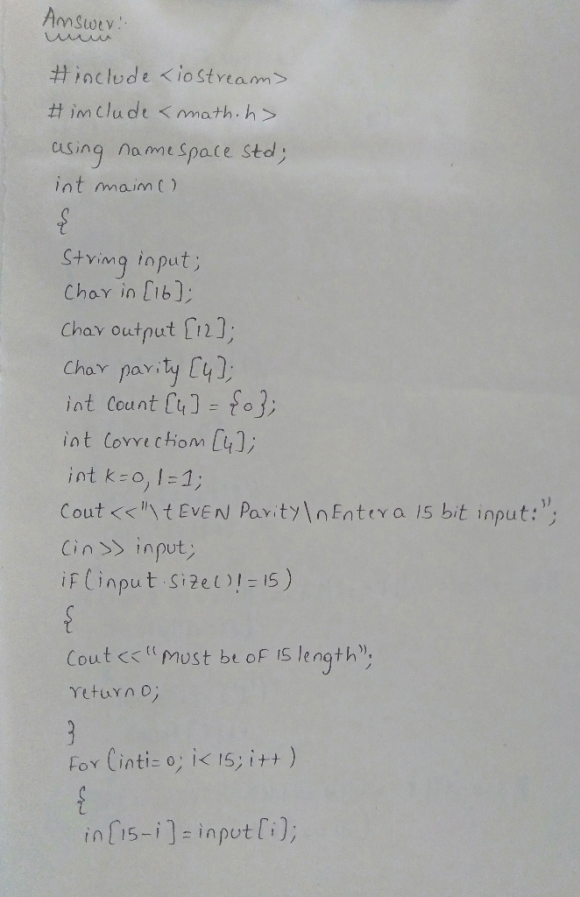 Answer:-
#include <iostream>
#include <math.h>
using namespace std;
int main()
{
String input;
Char in [16];
Char output [12];
Char parity [4];
int Count [4] = {0};
int Correction [4];
int k=0, l=1;
Cout <<"\t EVEN Parity\n Enter a 15 bit input:";
Cin >> input;
if (input.size()!=15)
{
Cout <<"must be of 15 length";
return 0;
}
For (inti=0; i<15; i++)
{
in[15-i] = input[i];